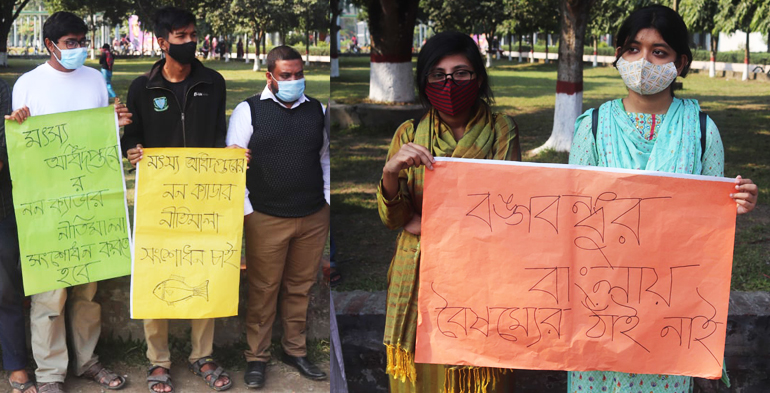 মৎস্য
অধিদপ্তরে
র
নন ক্যাডার
নীতিমালা
সংশোধন করতে
হবে
মৎস্য অধিদপ্তরের
নন ক্যাডার
নীতিমালা
সংশোধন চাই
বঙ্গবন্ধুর
বাংলায়
বৈষম্যের ঠাঁই নাই